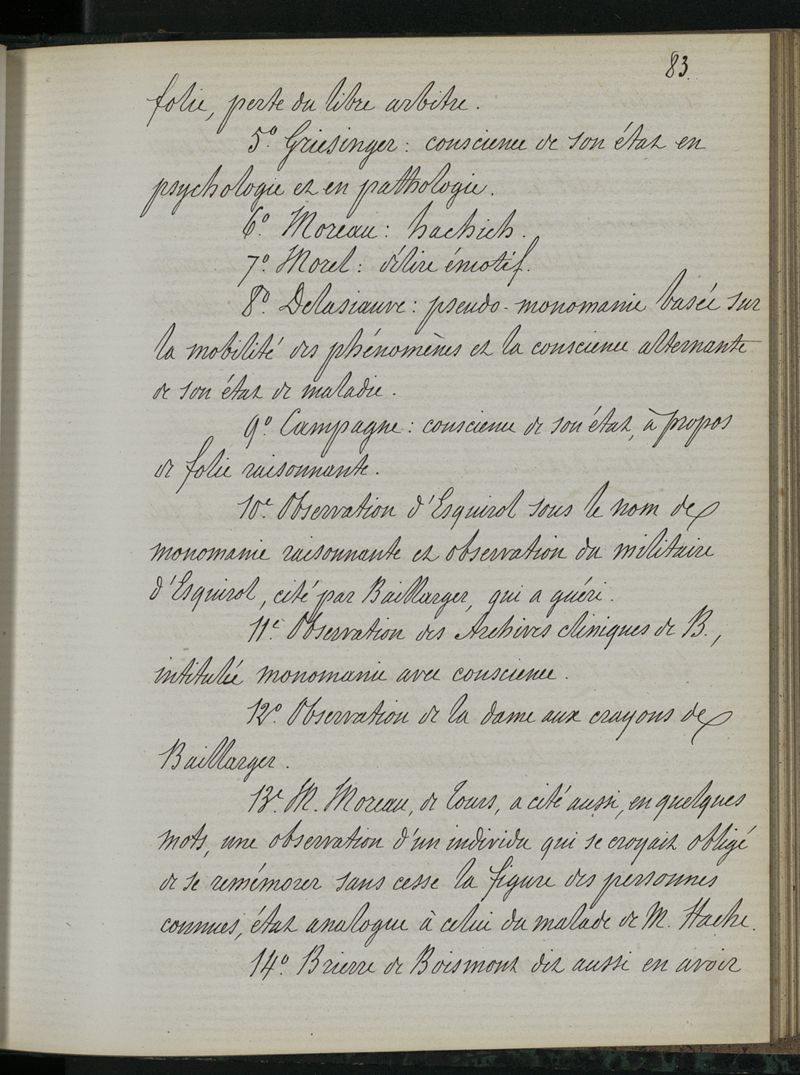 83
folie, perte du libre arbitre.
5° Griesinger: conscience de son état en
psychologie et en pathologie.
6° Moreau: hachich.
7° Morel: délire émotif.
8° Delasiauve: pseudo-monomanie basée sur
la mobilité des phénomènes et la conscience alternante
de son état de maladie.
9° Campagne: conscience de son état, à propos
de folie raisonnante.
10° Observation d'Esquirol sous le nom de
monomanie raisonnante et observation du militaire
d'Esquirol, cité par Baillarger, qui a guéri.
11° Observation des Archives cliniques de B.,
intitulée monomanie avec conscience.
12° Observation de la dame aux crayons de
Baillarger.
13° M. Moreau, de Tours, a cité aussi, en quelques
mots, une observation d'un individu qui se croyait obligé
de se remémorer sans cesse la figure des personnes
connues, état analogue à celui du malade de M.
14° Brierre de Boismont dit aussi en avoir